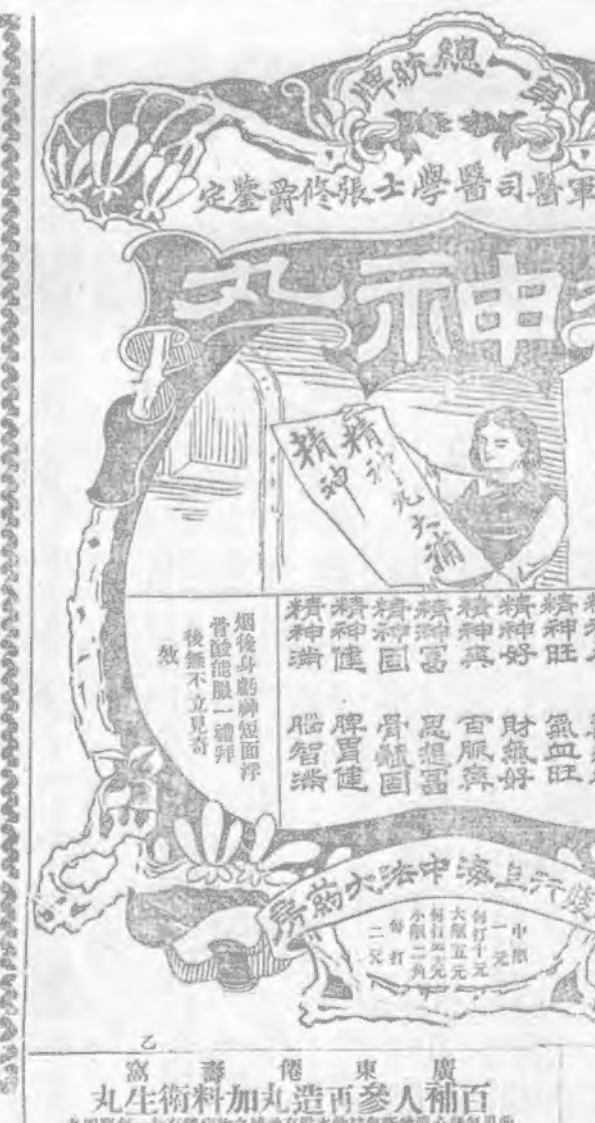 總統牌
軍醫司醫學士張修爵鑒定
神丸
精神丸大補
精神
精神旺 氣血旺
精神好 財氣好
精神爽 百脈爽
精神富 思想富
精神固 骨髓固
精神健 脾胃健
精神滿 腦智滿
烟後身虧神短面浮
骨酸能服一禮拜
後無不立見奇
效
發行上海中法大藥房
中瓶
一元
每打十元
大瓶五元
小瓶二角
每打
二元
乙
廣東僊壽窩
百補人參再造丸加料衛生丸